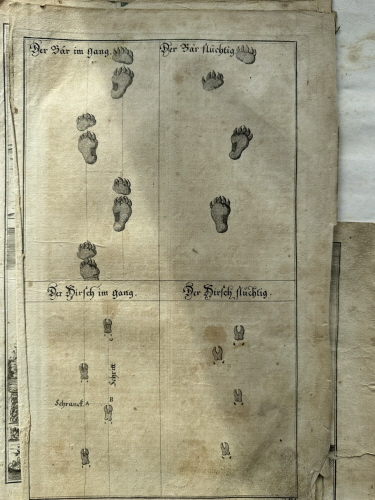 Der Bär im gang.
Der Bär flüchtig
Der Hirsch im gang.
Der Hirsch flüchtig.
Schritt
Schranck A
B